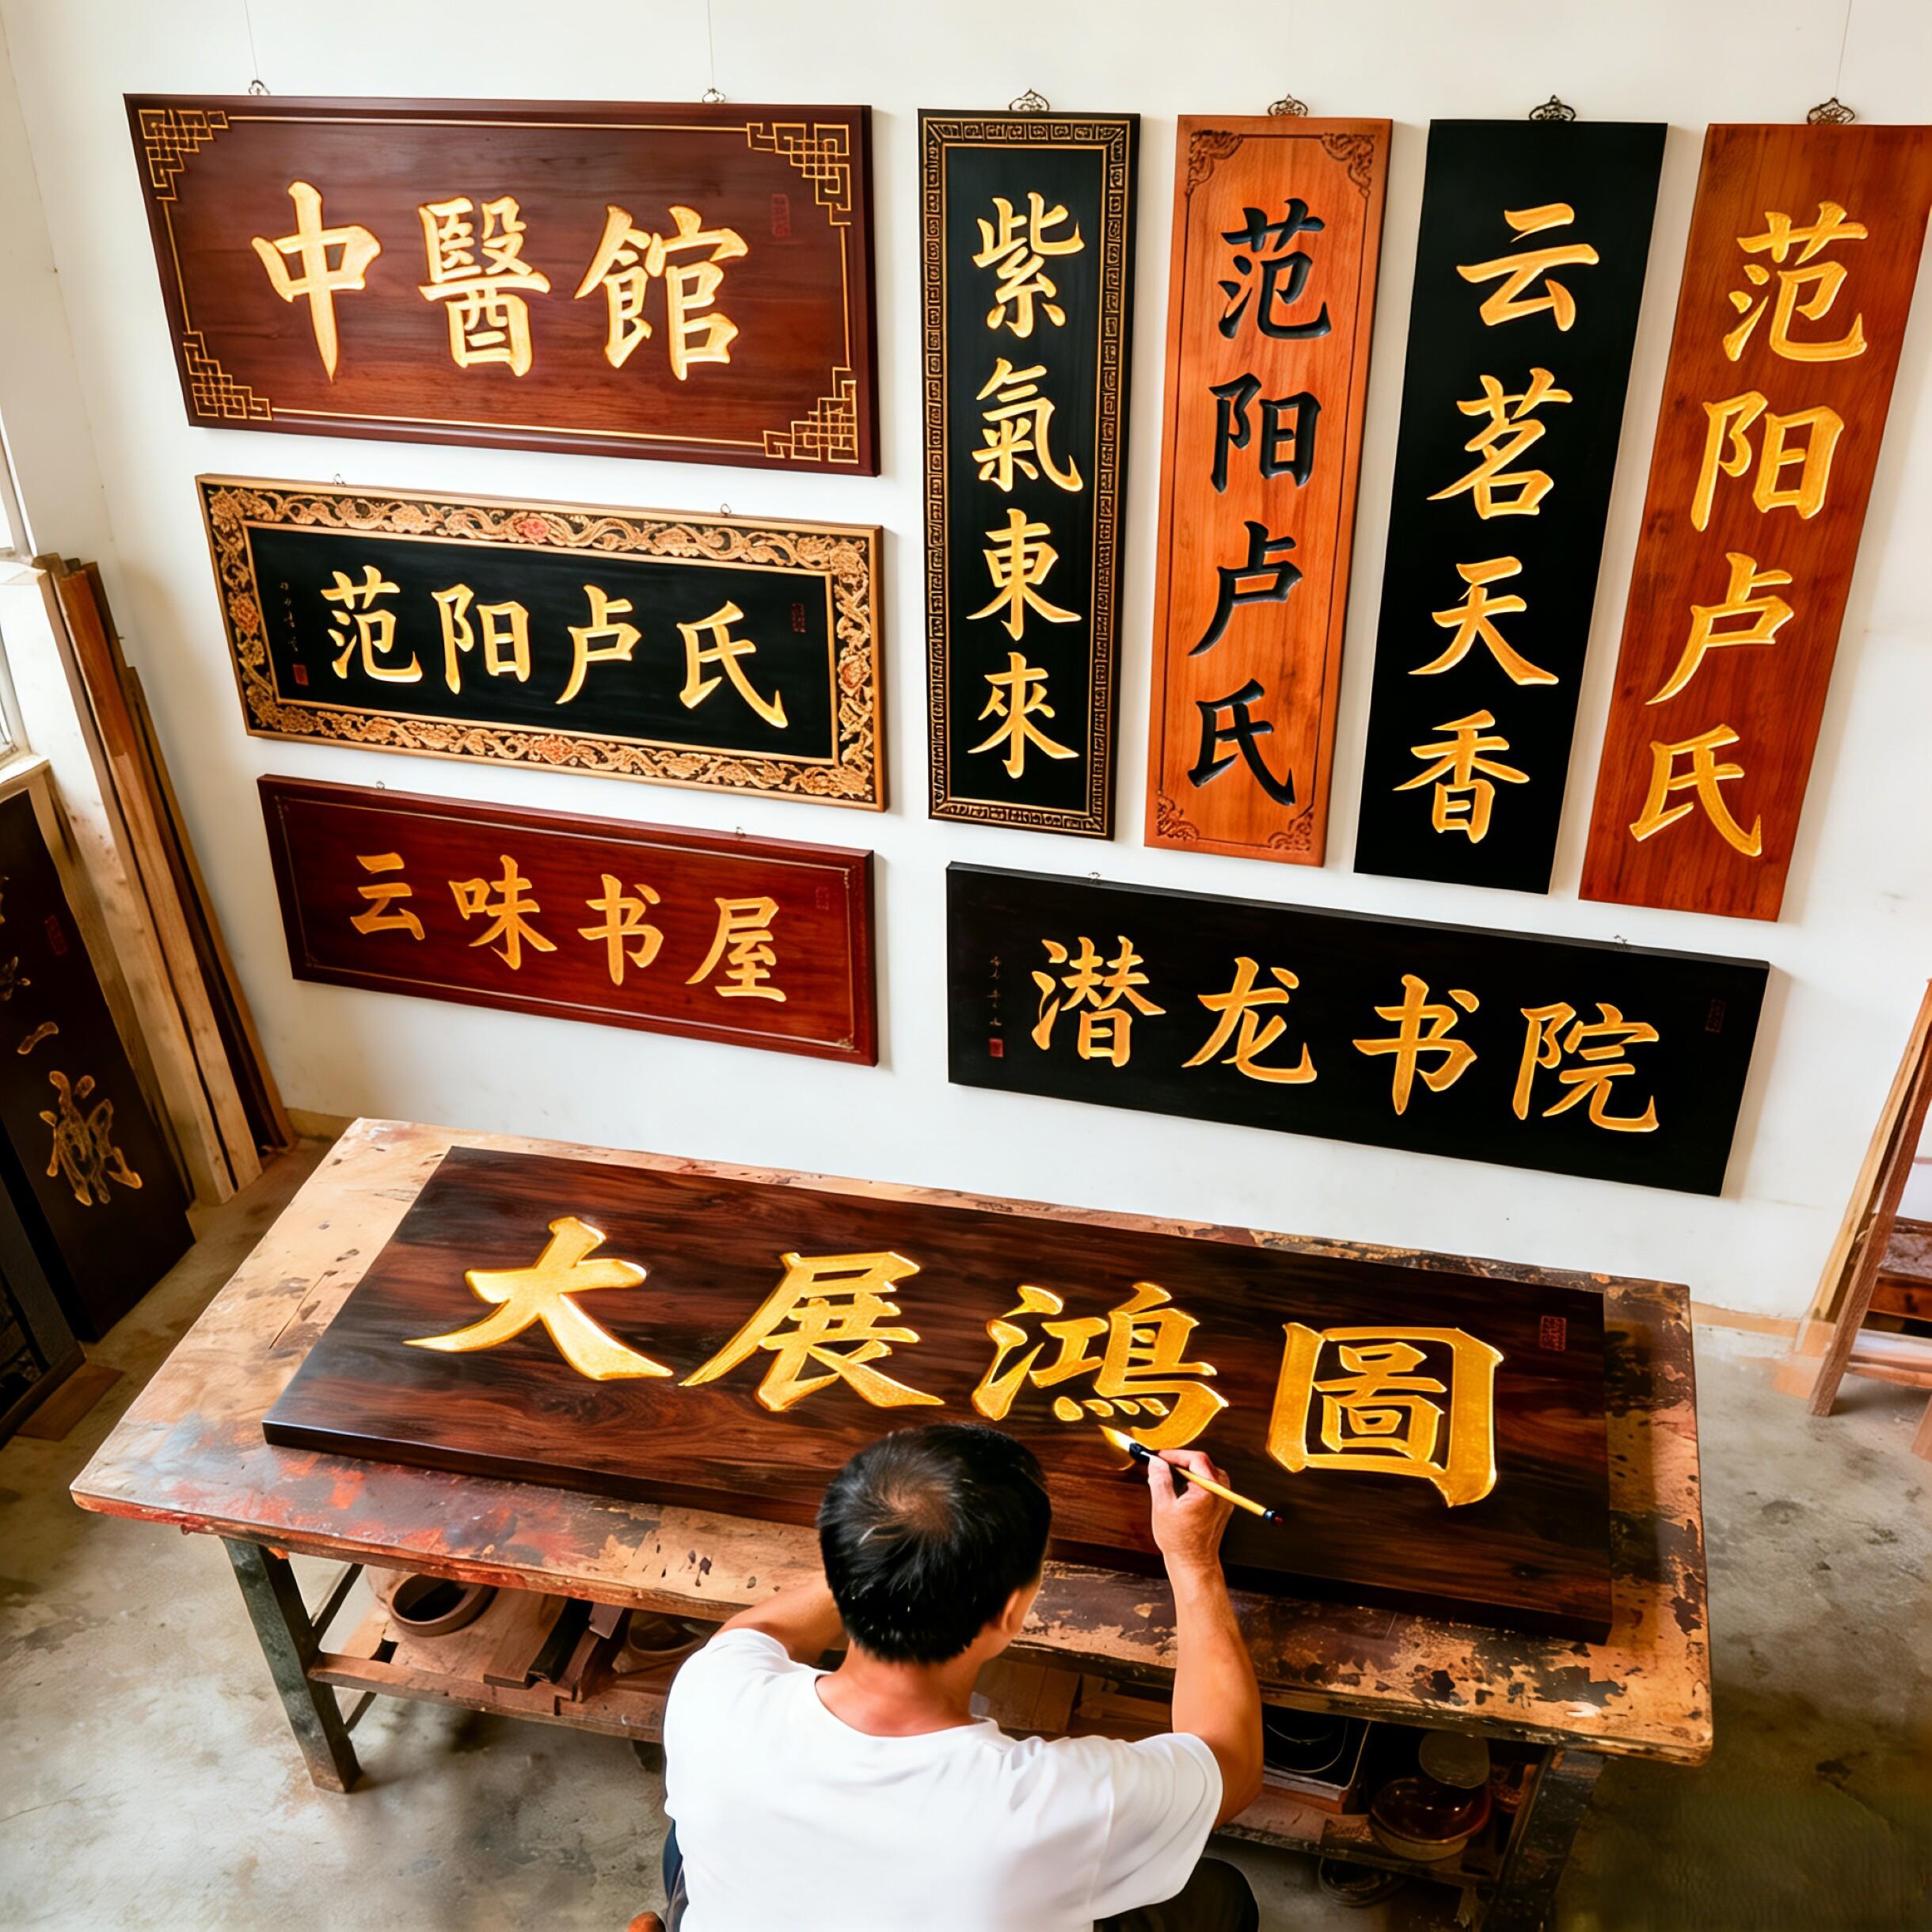 中醫館
范阳卢氏
云味书屋
紫氣東來
范阳卢氏
云茗天香
范阳卢氏
潜龙书院
大展鴻圖